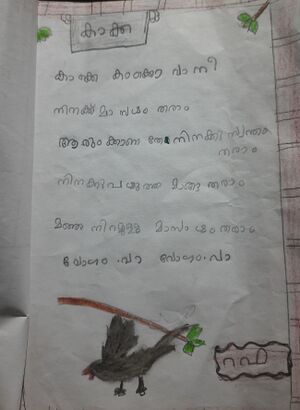 കാക്ക
കാക്കേ കാക്കേ വാ നീ
നിനക്ക് മാമ്പഴം തരാം
ആരും കാണാതേ നിനക്കി സ്വന്തം
തരാം
നിനക്ക് പഴുത്ത മാങ്ങ തരാം
മഞ്ഞ നിറമുള്ള മാമ്പഴം തരാം
വേഗം വാ വേഗം വാ